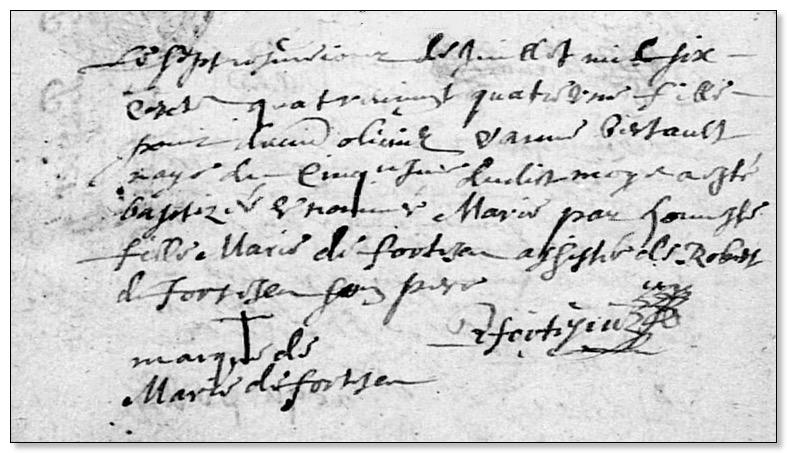 Le septiesme jour de juillet mil six
cents quatre vingt quatre une fille
pour david olivier & anne bertault
nays du cinquiesme dudict moys a esté
baptizée & nommée Marie par honneste
fille Marie de fortisen assistée de Robert
de fortisen son pere
R fortisen
marque de
Marie de fortisen